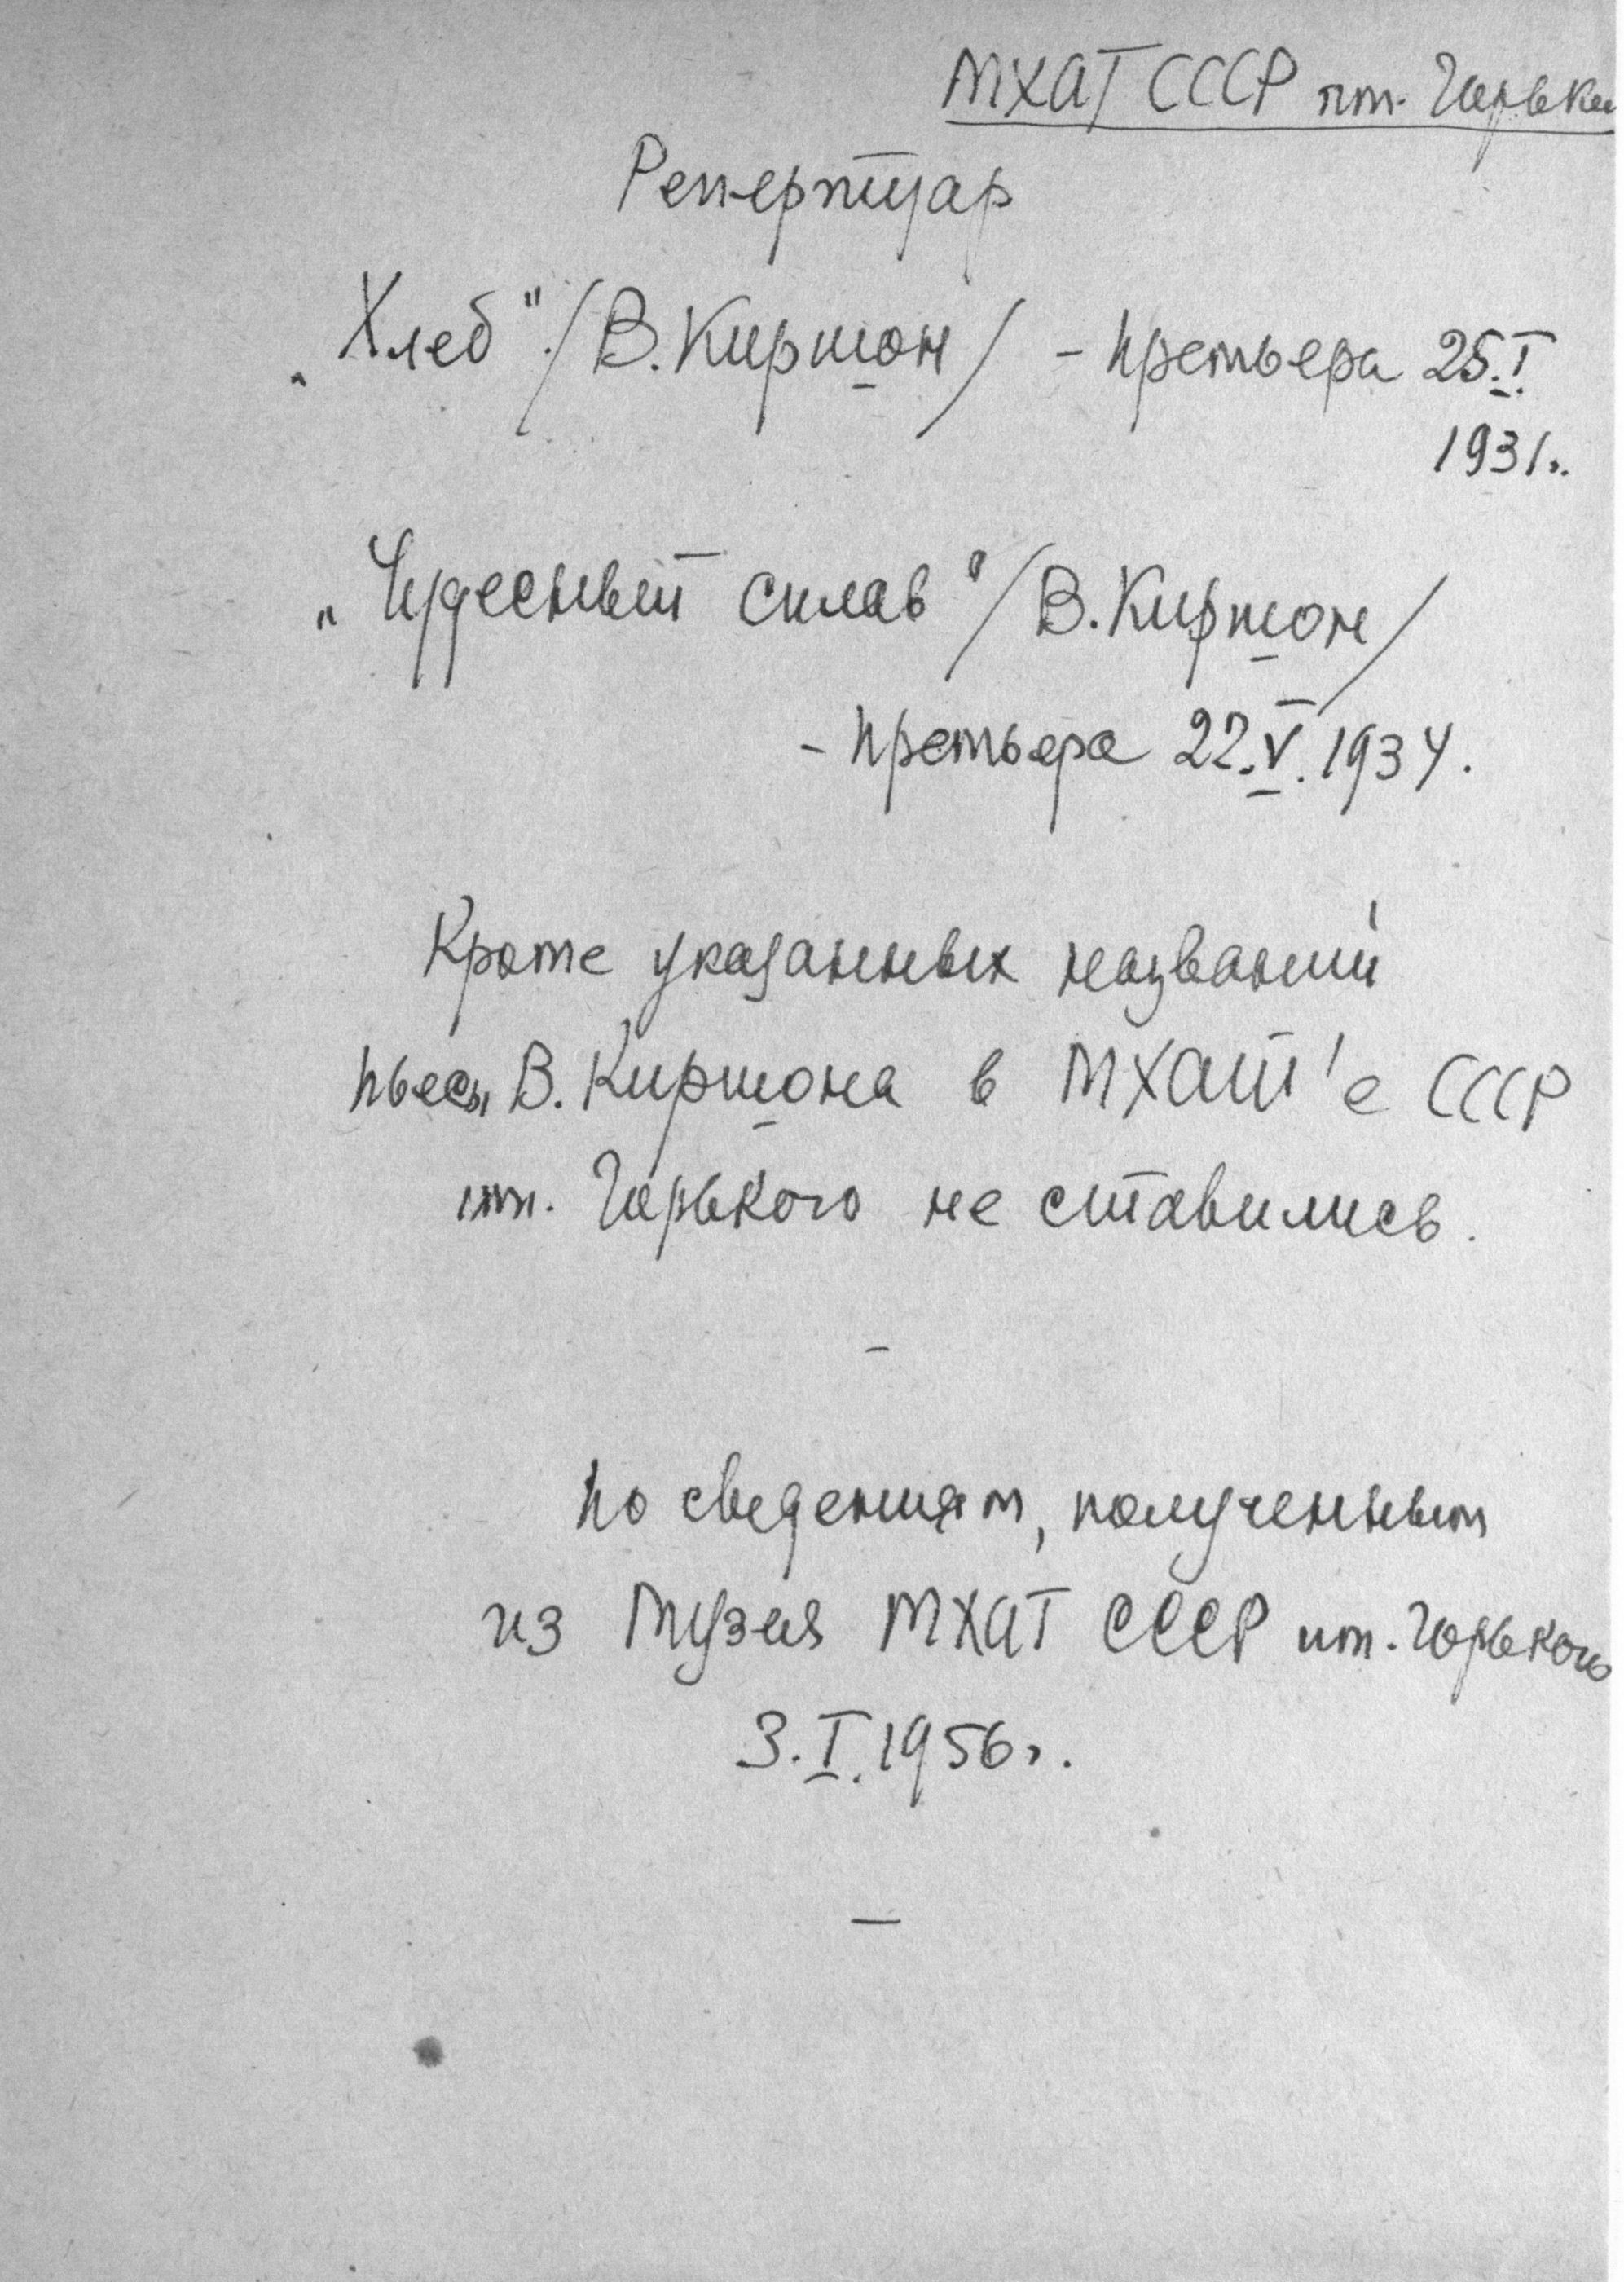 МХАТ СССР им. Горьки
Репертуар
„Хлеб"./В.Киршон/ - премьера 25.I.
1931г.
„Чудесный сплав"/В.Киршон/
- премьера 22.V.1934.
Кроме указанных названий
пьесы В. Киршона в МХАТ'е СССР
им. Горького не ставились.
-
По сведениям, полученным
из Музея МХАТ СССР им. Горького
3.I.1956г.
—